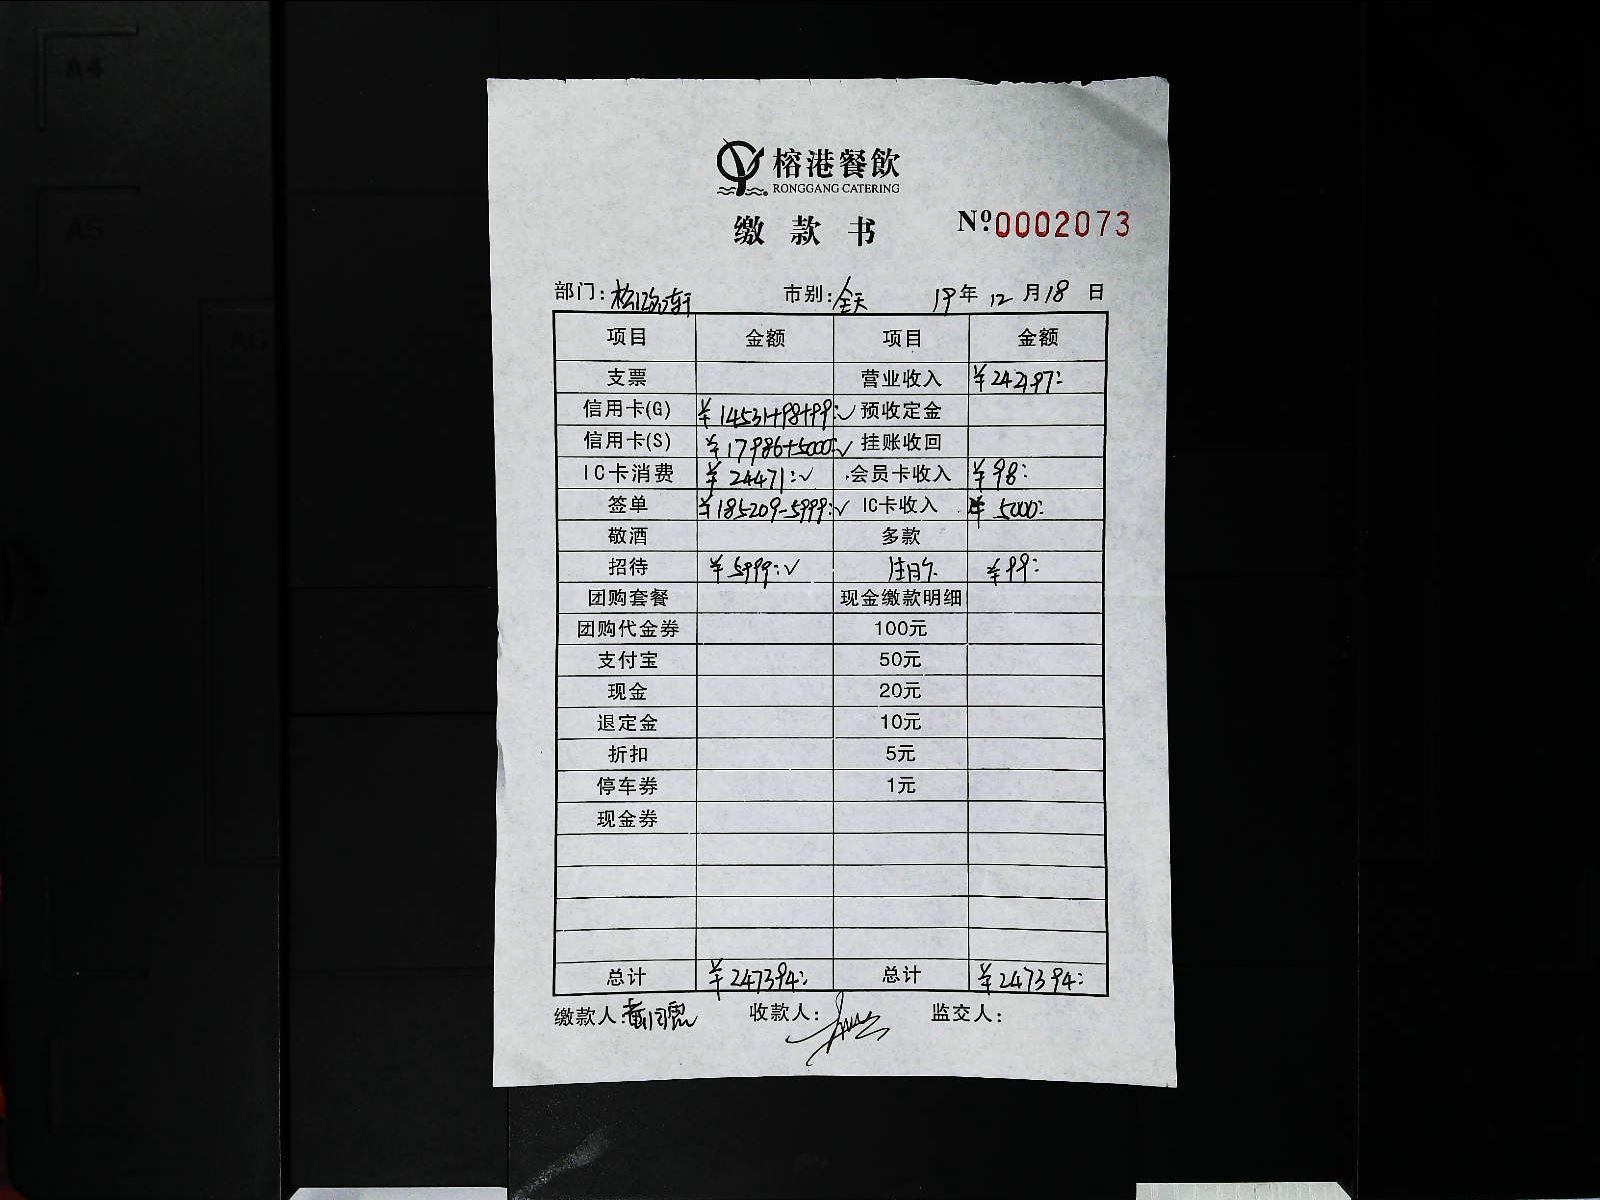 A4
A5
榕港餐飲
RONGGANG CATERING
缴款书 Nº0002073
部门: 市别:全天 19年12月18日
项目 金额 项目 金额
支票 营业收入 ¥242197:
信用卡(G) ¥14531+98+99:✓ 预收定金
信用卡(S) ¥17986+5000:✓ 挂账收回
IC卡消费 ¥24471:✓ 会员卡收入 ¥98:
签单 ¥185209-5999:✓ IC卡收入 ¥5000:
敬酒 多款
招待 ¥5999:✓ ¥99:
团购套餐 现金缴款明细
团购代金券 100元
支付宝 50元
现金 20元
退定金 10元
折扣 5元
停车券 1元
现金券
总计 ¥247394: 总计 ¥247394:
缴款人: 收款人: 监交人: